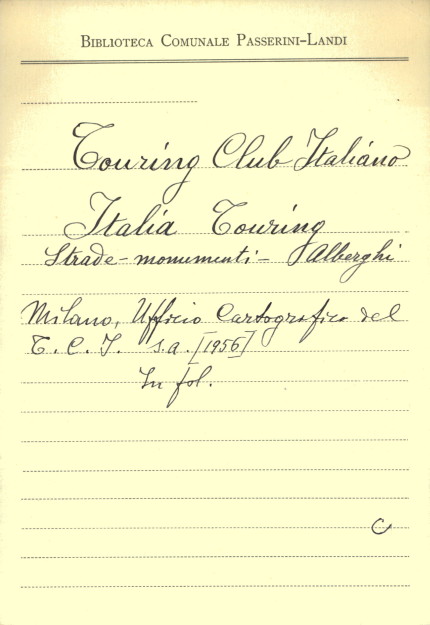 BIBLIOTECA COMUNALE PASSERINI-LANDI
Touring Club Italiano
Italia Touring
Strade - monumenti - Alberghi
Milano, Ufficio Cartografico del
T. C. I. s.a. [1956]
In fol.
C